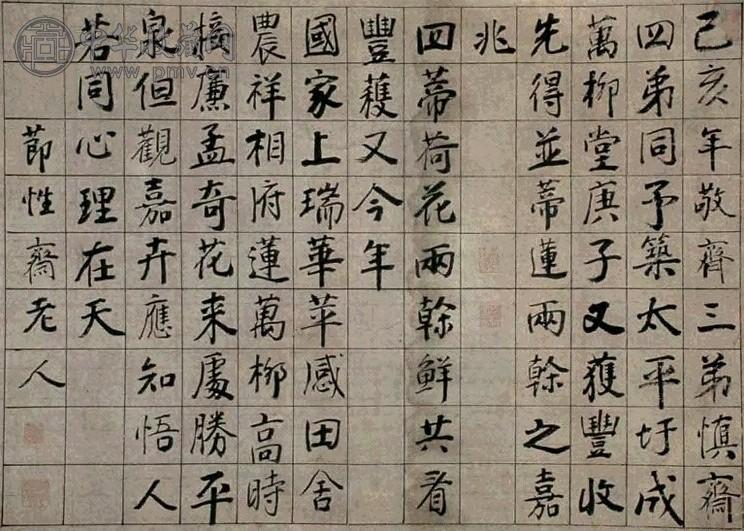 己亥年敬齊三弟慎齋
四弟同予築太平圩成
萬柳堂庚子又獲豐收
先得並蒂蓮兩榦之嘉
兆
四蒂荷花兩榦鮮共看
豐穫又今年
國家上瑞華苹感田舍
農祥相府蓮萬柳高時
摘廉孟奇花来處勝平
泉但觀嘉卉應知悟人
若同心理在天
節性齋老人
中华收藏网
www.pmv.cn